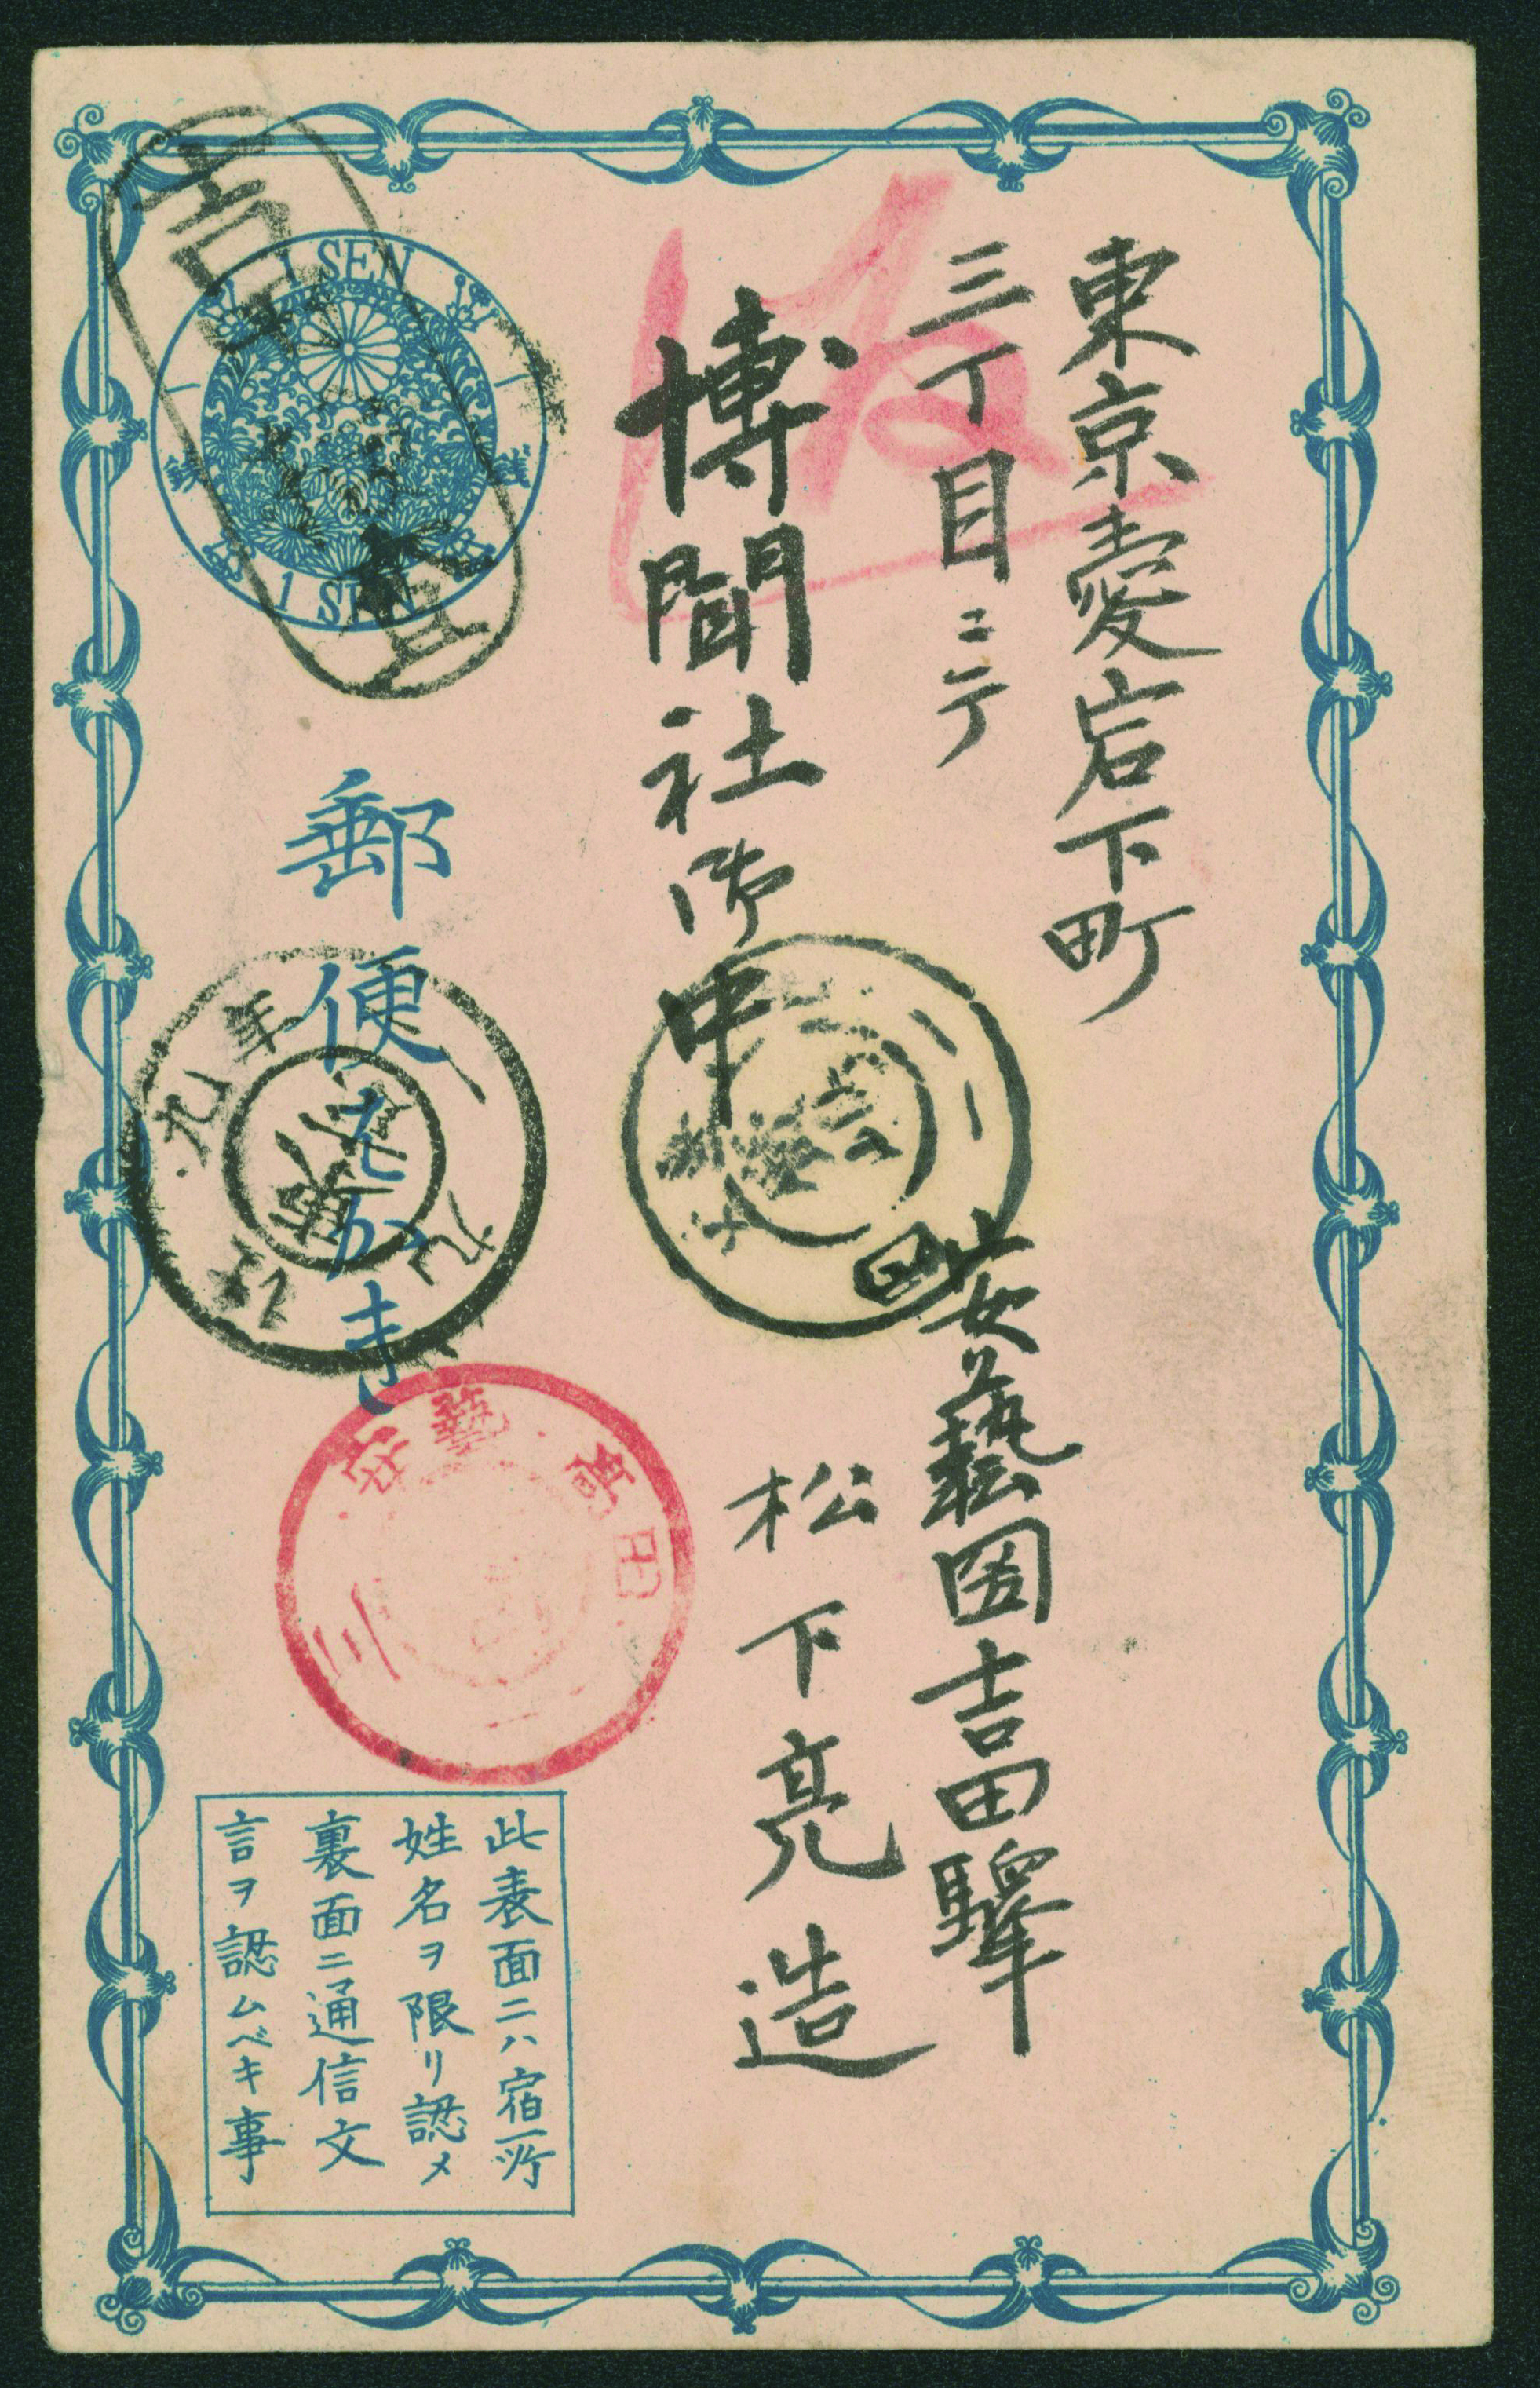 東京愛宕下町
三丁目二
博聞社御中
安藝國吉田驛
松下亮造
1 SEN
一 銭
1 SEN
郵便はかき
安藝 高田
此表面ニハ宿所
姓名ヲ限リ認メ
裏面ニ通信文
言ヲ認ムベキ事